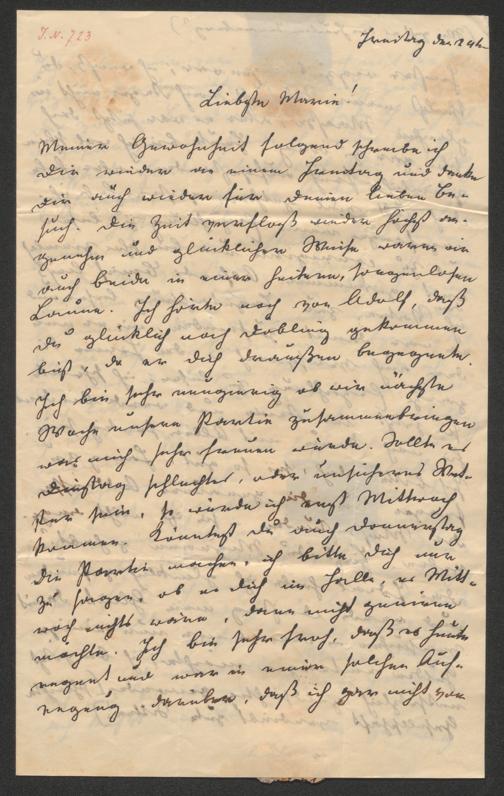 I.N. 723
Freitag den 24t
Liebste Marie!
Meiner Gewohnheit folgend schreibe ich
Dir wieder an einem Freitag und danke
Dir auch wieder für Deinen lieben Be-
such. Die Zeit verfloß wieder höchst an-
genehm und glücklicher Weise waren wir
auch beide in einer heitern, sorgenlosen
Laune. Ich hörte noch von Adolf, daß
du glücklich nach Döbling gekommen
bist, da er dich draußen begegnete.
Ich bin sehr neugierig ob wir nächste
Woche unsere Partie zusammenbringen
was mich sehr freuen würde. Sollte es
Dienstag schlechtes, oder unsicheres Wet-
ter sein, so würde ich erst Mittwoch
kommen. Könntest du auch Donnerstag
die Partie machen, ich bitte dich nur
zu sagen, ob es dich im Falle, es Mitt-
woch nichts wäre, dann nicht geniren
möchte. Ich bin sehr froh, daß es heute
regnet und war in einer solchen Auf-
regung darüber, daß ich gar nicht von